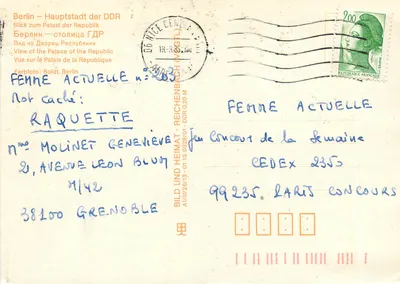 Berlin – Hauptstadt der DDR
Blick zum Palast der Republik
Берлин – столица ГДР
Вид на Дворец Республики
View of the Palace of the Republic
Vue sur le Palais de la République
Farbfoto: Boldt, Berlin
06 NICE
2,00
FEMME ACTUELLE n°
Mot Caché:
RAQUETTE
Mme MOLINET GENEVIÈVE
2, AVENUE LEON BLUM
38100 GRENOBLE
BILD UND HEIMAT REICHENBACH
FEMME ACTUELLE
Jeu Concours de la Semaine
CEDEX 2350
99235. PARIS CONCOURS